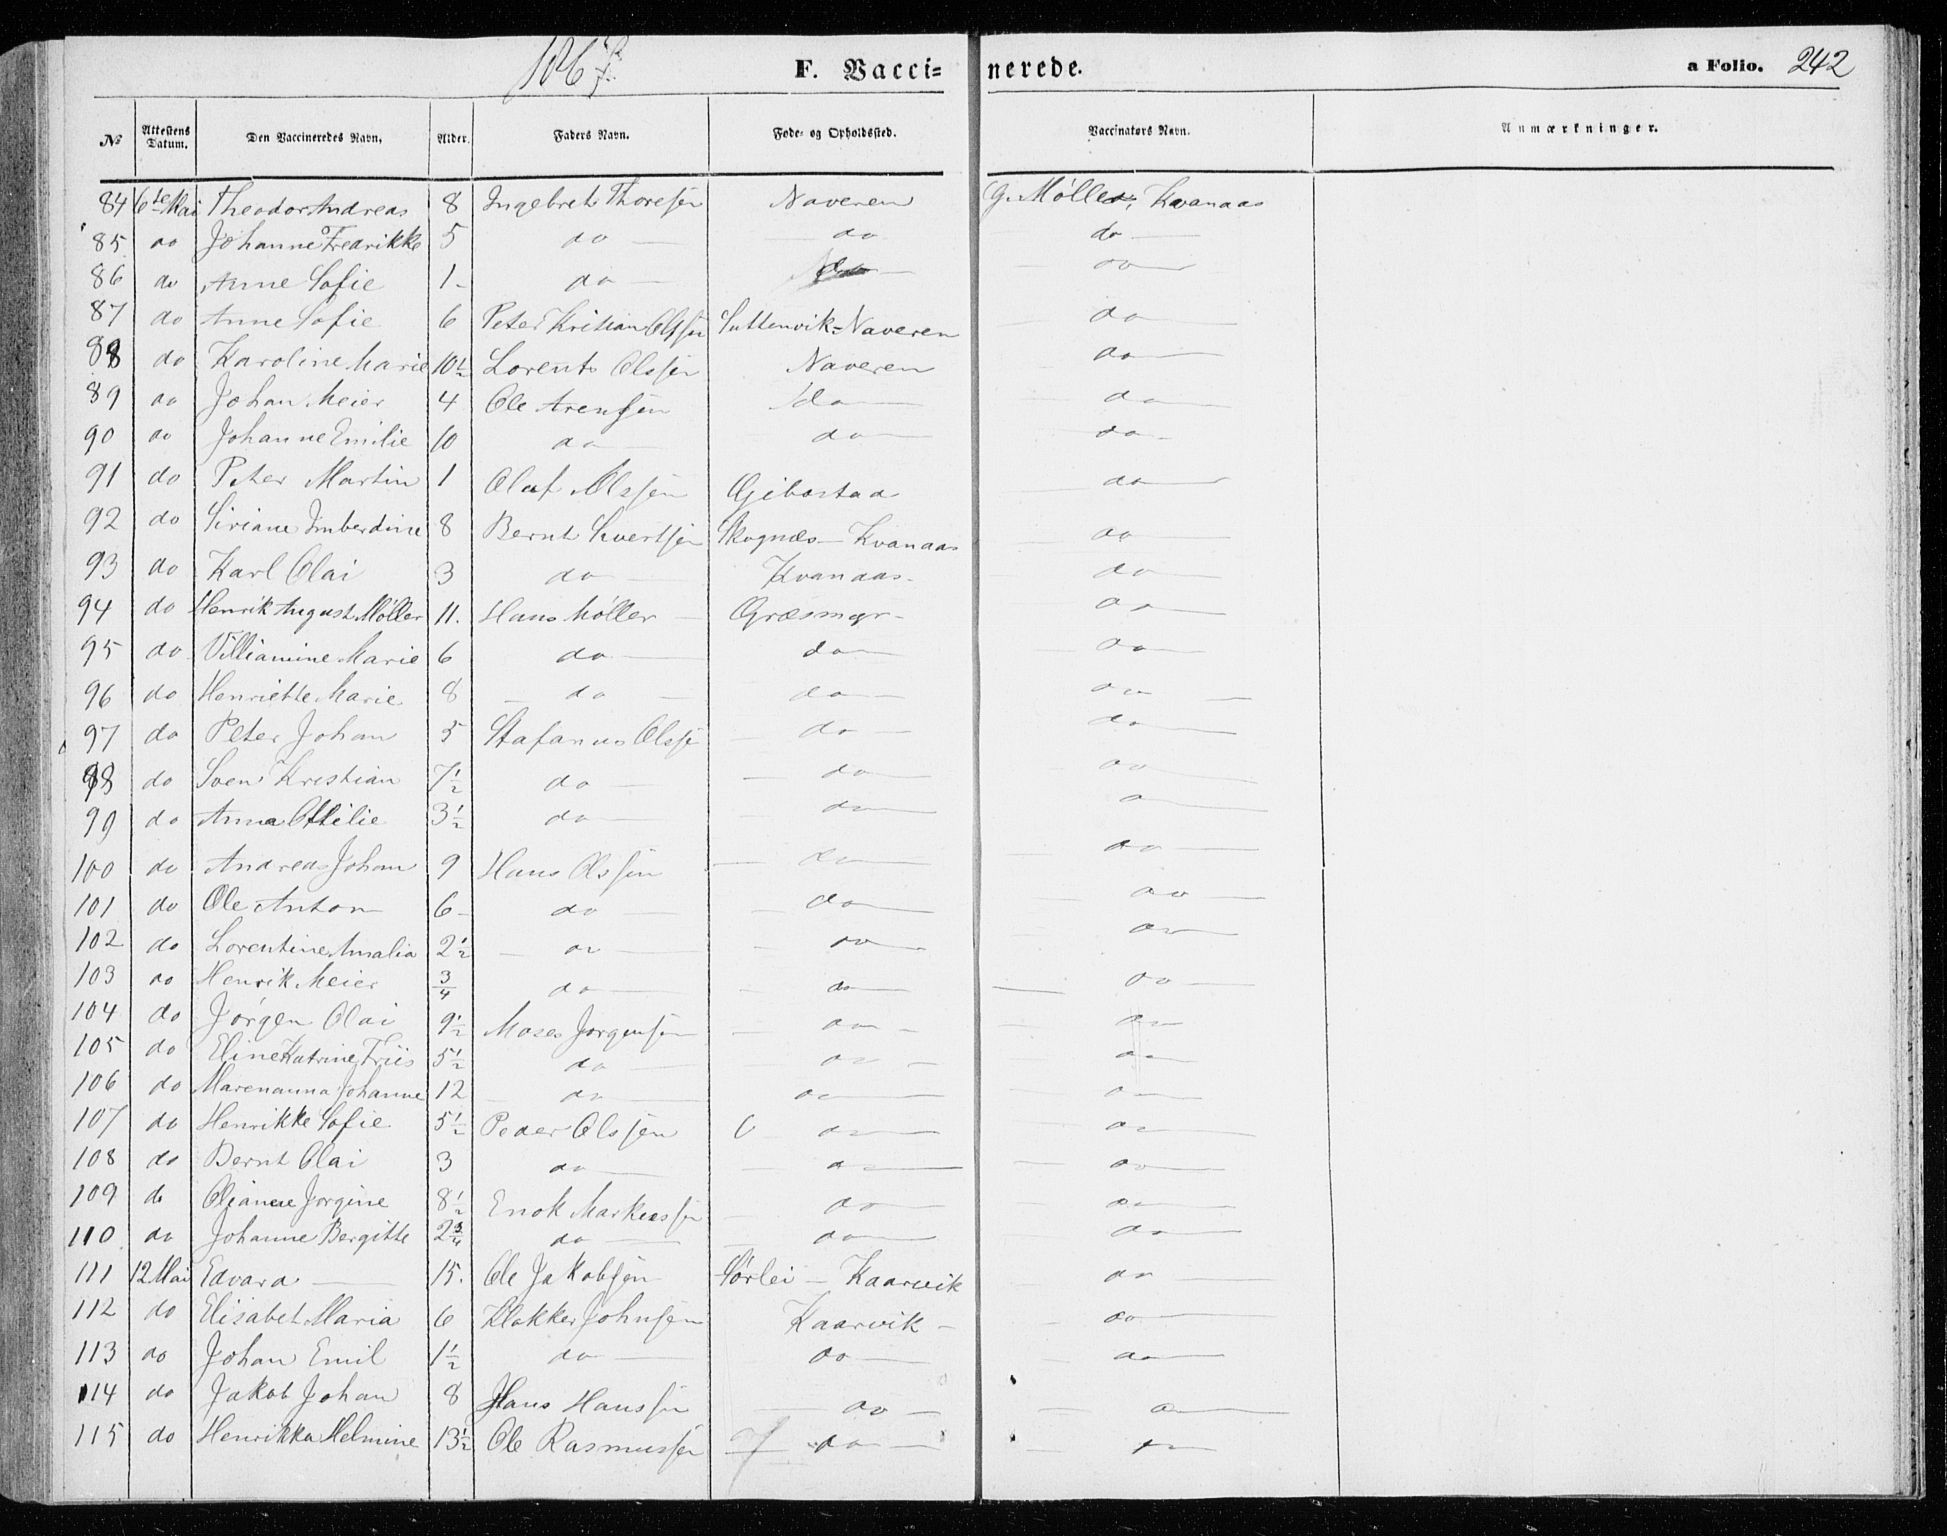 F. Vaccinerede. a Folio. 242
№ Attestens Datum. Den Vaccineredes Navn. Alder. Faders Navn. Føde- og Opholdssted. Vaccinatørs Navn. Anmærkninger.
84 6te Mai Theodor Andreas 8 Ingebret Thoresen Naveren G. Møller, Kvanaas
85 do Johanne Fredrikke 5 do do do
86 do Anne Sofie 1 do do do
87 do Anne Sofie 6 Peter Kristian Olsen Naveren do
88 do Karoline Marie 10½ Lorents Olssen Naveren do
89 do Johan Meier 4 Ole Arentsen do do
90 do Johanne Emilie 10 do do do
91 do Peter Martin 1 Olaf Olssen Gibostad do
92 do Siriane Imberdine 8 Bernt Sivertsen Skognæs - Kvanaas do
93 do Karl Olai 3 do Kvanaas do
94 do Henrik August Møller 11. Hans Møller Græsmyr do
95 do Villiamine Marie 6 do do do
96 do Henriette Marie 8 do do do
97 do Peter Johan 5 Stafanus Olssen do do
98 do Sven Kristian 7½ do do do
99 do Anna Ottilie 3½ do do do
100 do Andreas Johan 9 Hans Olssen do do
101 do Ole Anton 6 do do do
102 do Lorentine Amalia 2½ do do do
103 do Henrik Meier ¾ do do do
104 do Jørgen Olai 9½ Moses Jørgensen do do
105 do Eline Katrine Friis 5½ do do do
106 do Marenanna Johanne 12 do do do
107 do Henrikke Sofie 5½ Peder Olssen do do
108 do Bernt Olai 3 do do do
109 do Olianne Jørgine 8½ Enok Markussen do do
110 do Johanne Bergitte 2¾ do do do
111 12 Mai Edvard 15. Ole Jakobsen Sørlei - Kaarvik do
112 do Elisabet Maria 6 Klokker Johnsen Kaarvik do
113 do Johan Emil 1½ do do do
114 do Jakob Johan 8 Hans Hanssen do do
115 do Henrikka Helmine 13½ Ole Rasmussen do do